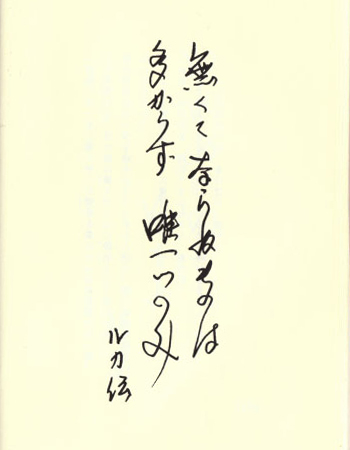 無くてならぬものは
多からず 唯一つのみ
ルカ伝